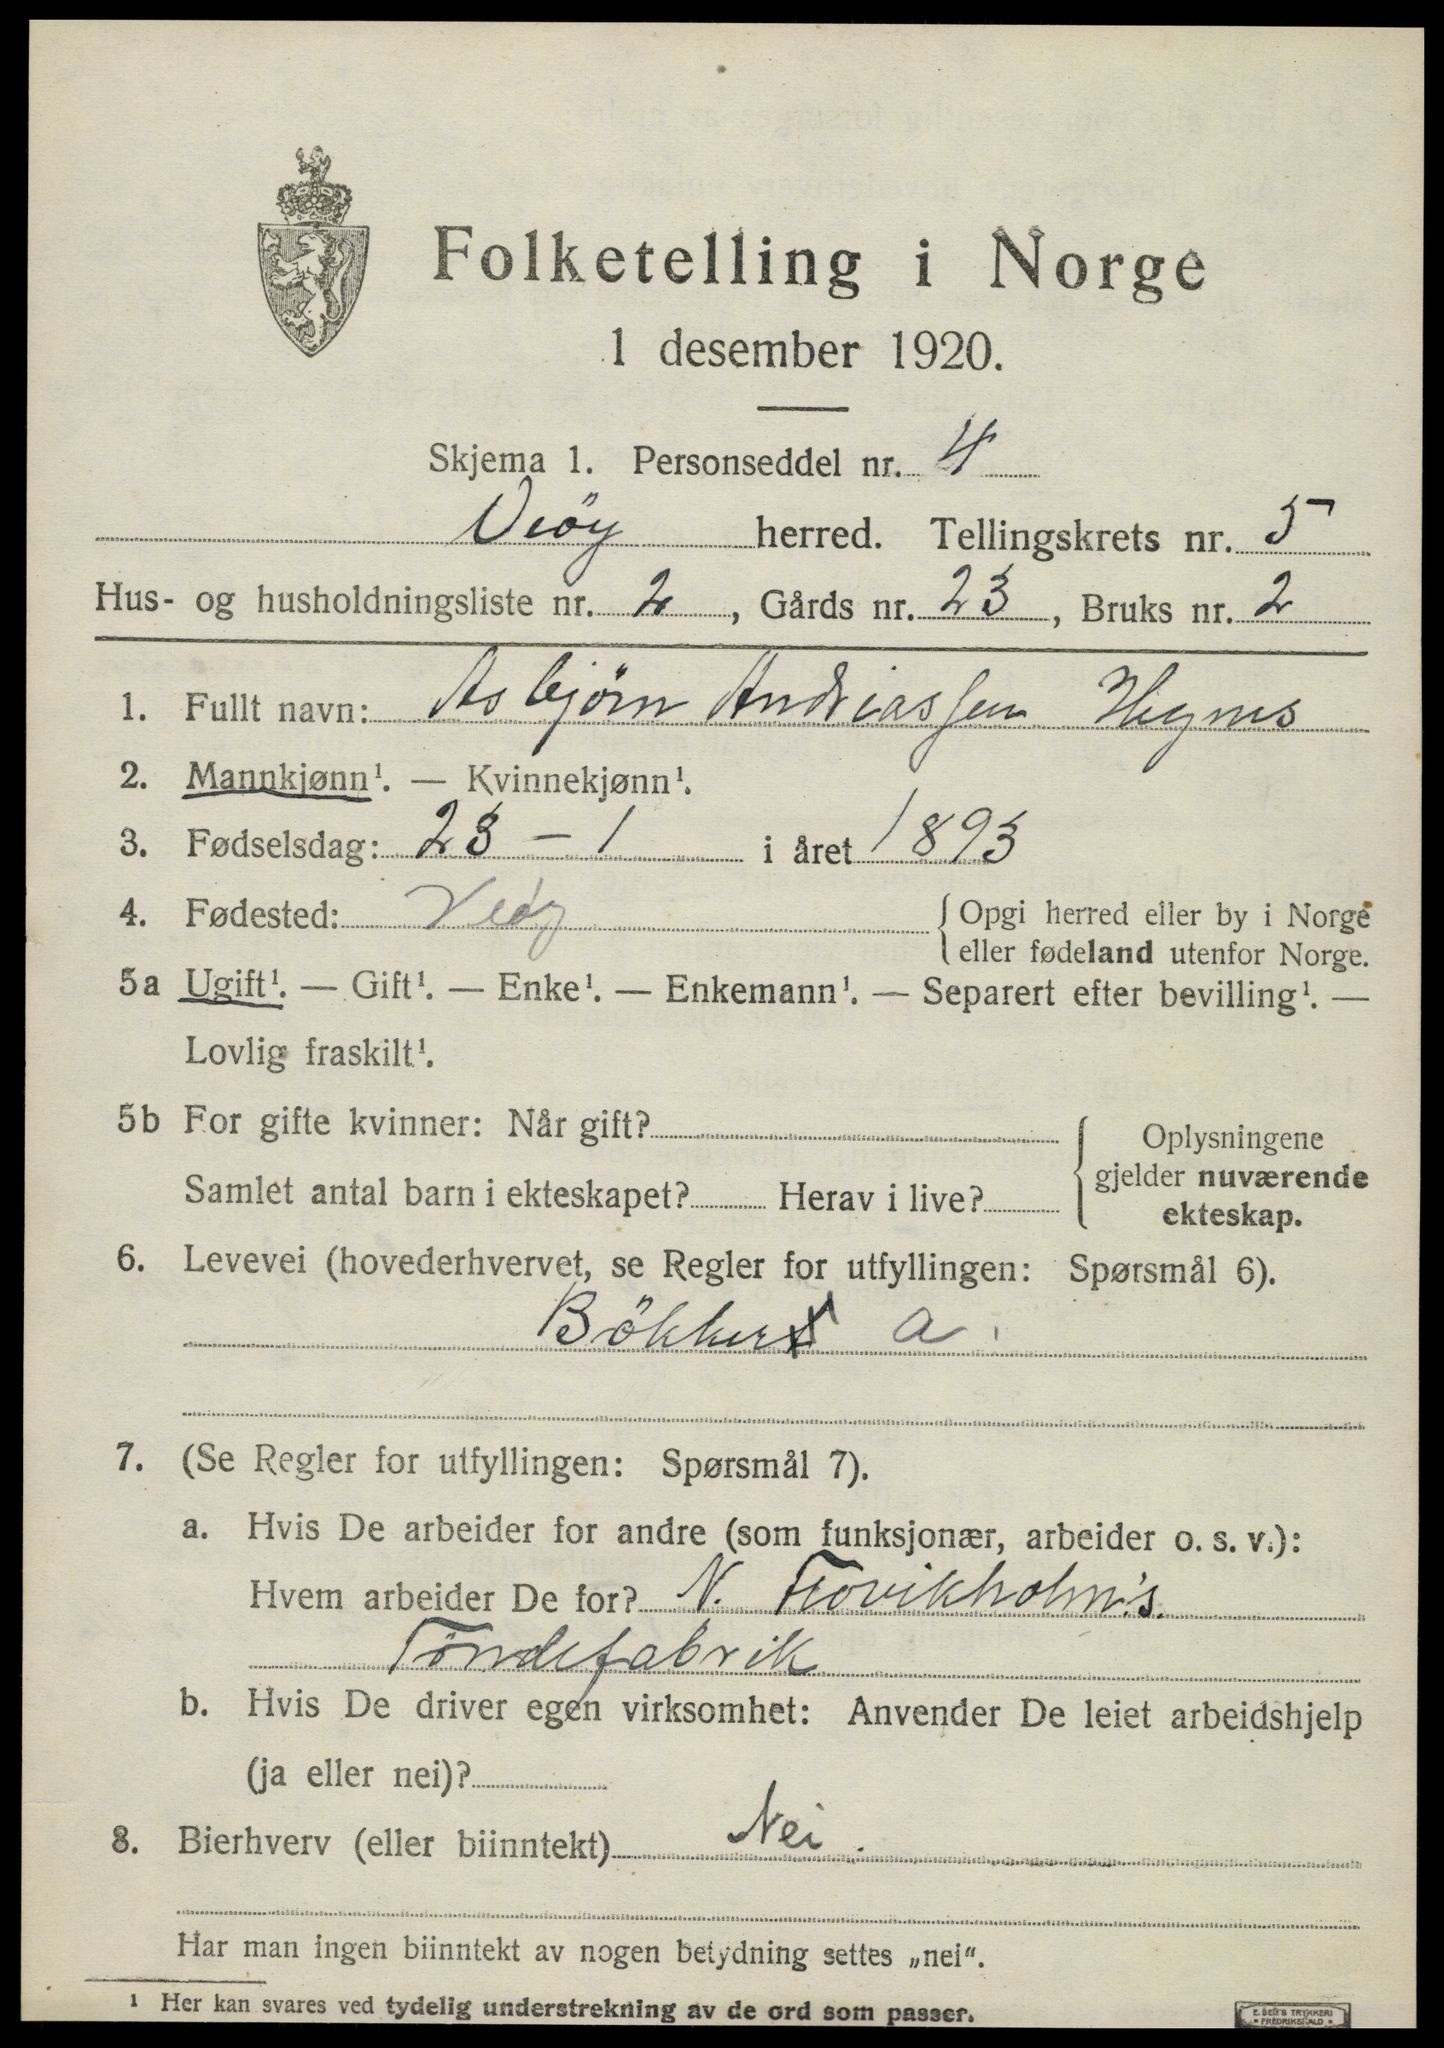 Folketelling i Norge
1 desember 1920.
Skjema 1. Personseddel nr. 4
Veöy herred. Tellingskrets nr. 5
Hus- og husholdningsliste nr. 2, Gårds nr. 23, Bruks nr. 2
1. Fullt navn: Asbjörn Andreassen
2. Mannkjønn¹. — Kvinnekjønn¹.
3. Fødselsdag: 23 – 1 i året 1893
4. Fødested: Veöy { Opgi herred eller by i Norge
eller fødeland utenfor Norge.
5a Ugift¹. — Gift¹. — Enke¹. — Enkemann¹. — Separert efter bevilling¹. —
Lovlig fraskilt¹.
5b For gifte kvinner: Når gift? { Oplysningene
gjelder nuværende
Samlet antal barn i ekteskapet? Herav i live?
ekteskap.
6. Levevei (hovederhvervet, se Regler for utfyllingen: Spørsmål 6).
Bökker a.
7. (Se Regler for utfyllingen: Spørsmål 7).
a. Hvis De arbeider for andre (som funksjonær, arbeider o. s. v.):
Hvem arbeider De for? N. Flovikholm's
Töndefabrik
b. Hvis De driver egen virksomhet: Anvender De leiet arbeidshjelp
(ja eller nei)?
8. Bierhverv (eller biinntekt) Nei.
Har man ingen biinntekt av nogen betydning settes „nei“.
¹ Her kan svares ved tydelig understrekning av de ord som passer.
E. SEM'S TRYKKERI
FREDRIKSHALD